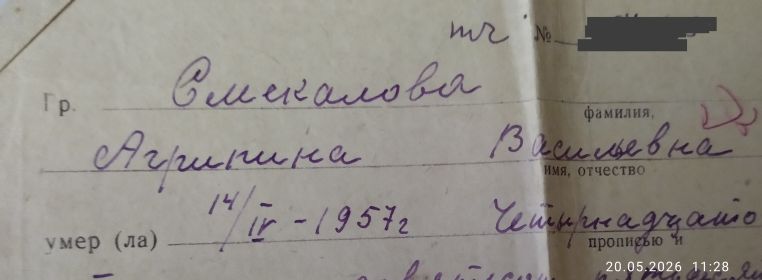 тч №
Гр. Смекалова
фамилия,
Агрипина Васильевна
имя, отчество
умер (ла) 14/IV - 1957г Четырнадцато
прописью и
20.05.2026 11:28